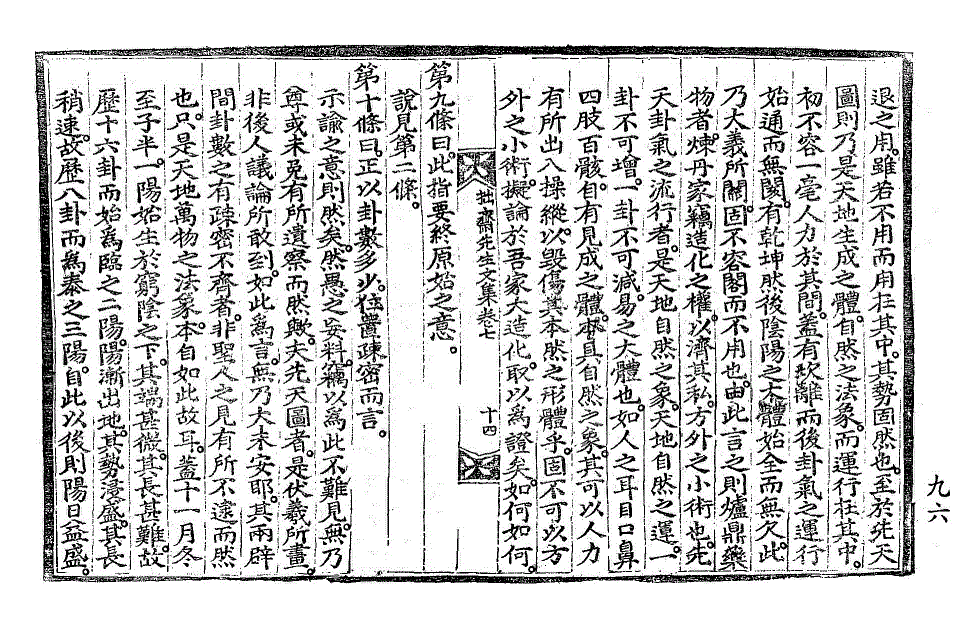 退之用。雖若不用而用在其中。其勢固然也。至於先天
圖則乃是天地生成之體。自然之法象。而運行在其中。
初不容一毫人力於其間。蓋有坎離而後卦氣之運行
始通而無閡。有乾坤然後陰陽之本體始全而無欠。此
乃大義所關。固不容閣而不用也。由此言之則爐鼎藥
物者。煉丹家竊造化之權。以濟其私。方外之小術也。先
天卦氣之流行者。是天地自然之象。天地自然之運。一
卦不可增。一卦不可減。易之大體也。如人之耳目口鼻
四肢百骸。自有見成之體。本具自然之象。其可以人力
有所出入操縱。以毁傷其本然之形體乎。固不可以方
外之小術。擬論於吾家大造化。取以爲證矣。如何如何。
第九條曰。此指要終原始之意。
說見第二條。
第十條曰。正以卦數多少。位置疎密而言。
示諭之意則然矣。然愚之妄料。竊以爲此不難見。無乃
尊或未免有所遺察而然歟。夫先天圖者。是伏羲所畫。
非後人議論所敢到。如此爲言。無乃大未安耶。其兩辟
間卦數之有疎密不齊者。非聖人之見有所不逮而然
也。只是天地萬物之法象。本自如此故耳。蓋十一月冬
至子半。一陽始生於窮陰之下。其端甚微。其長甚難。故
歷十六卦而始爲臨之二陽。陽漸出地。其勢漫盛。其長
稍速。故歷八卦而爲泰之三陽。自此以後則陽日益盛。
拙齋先生文集卷七
十四
九六